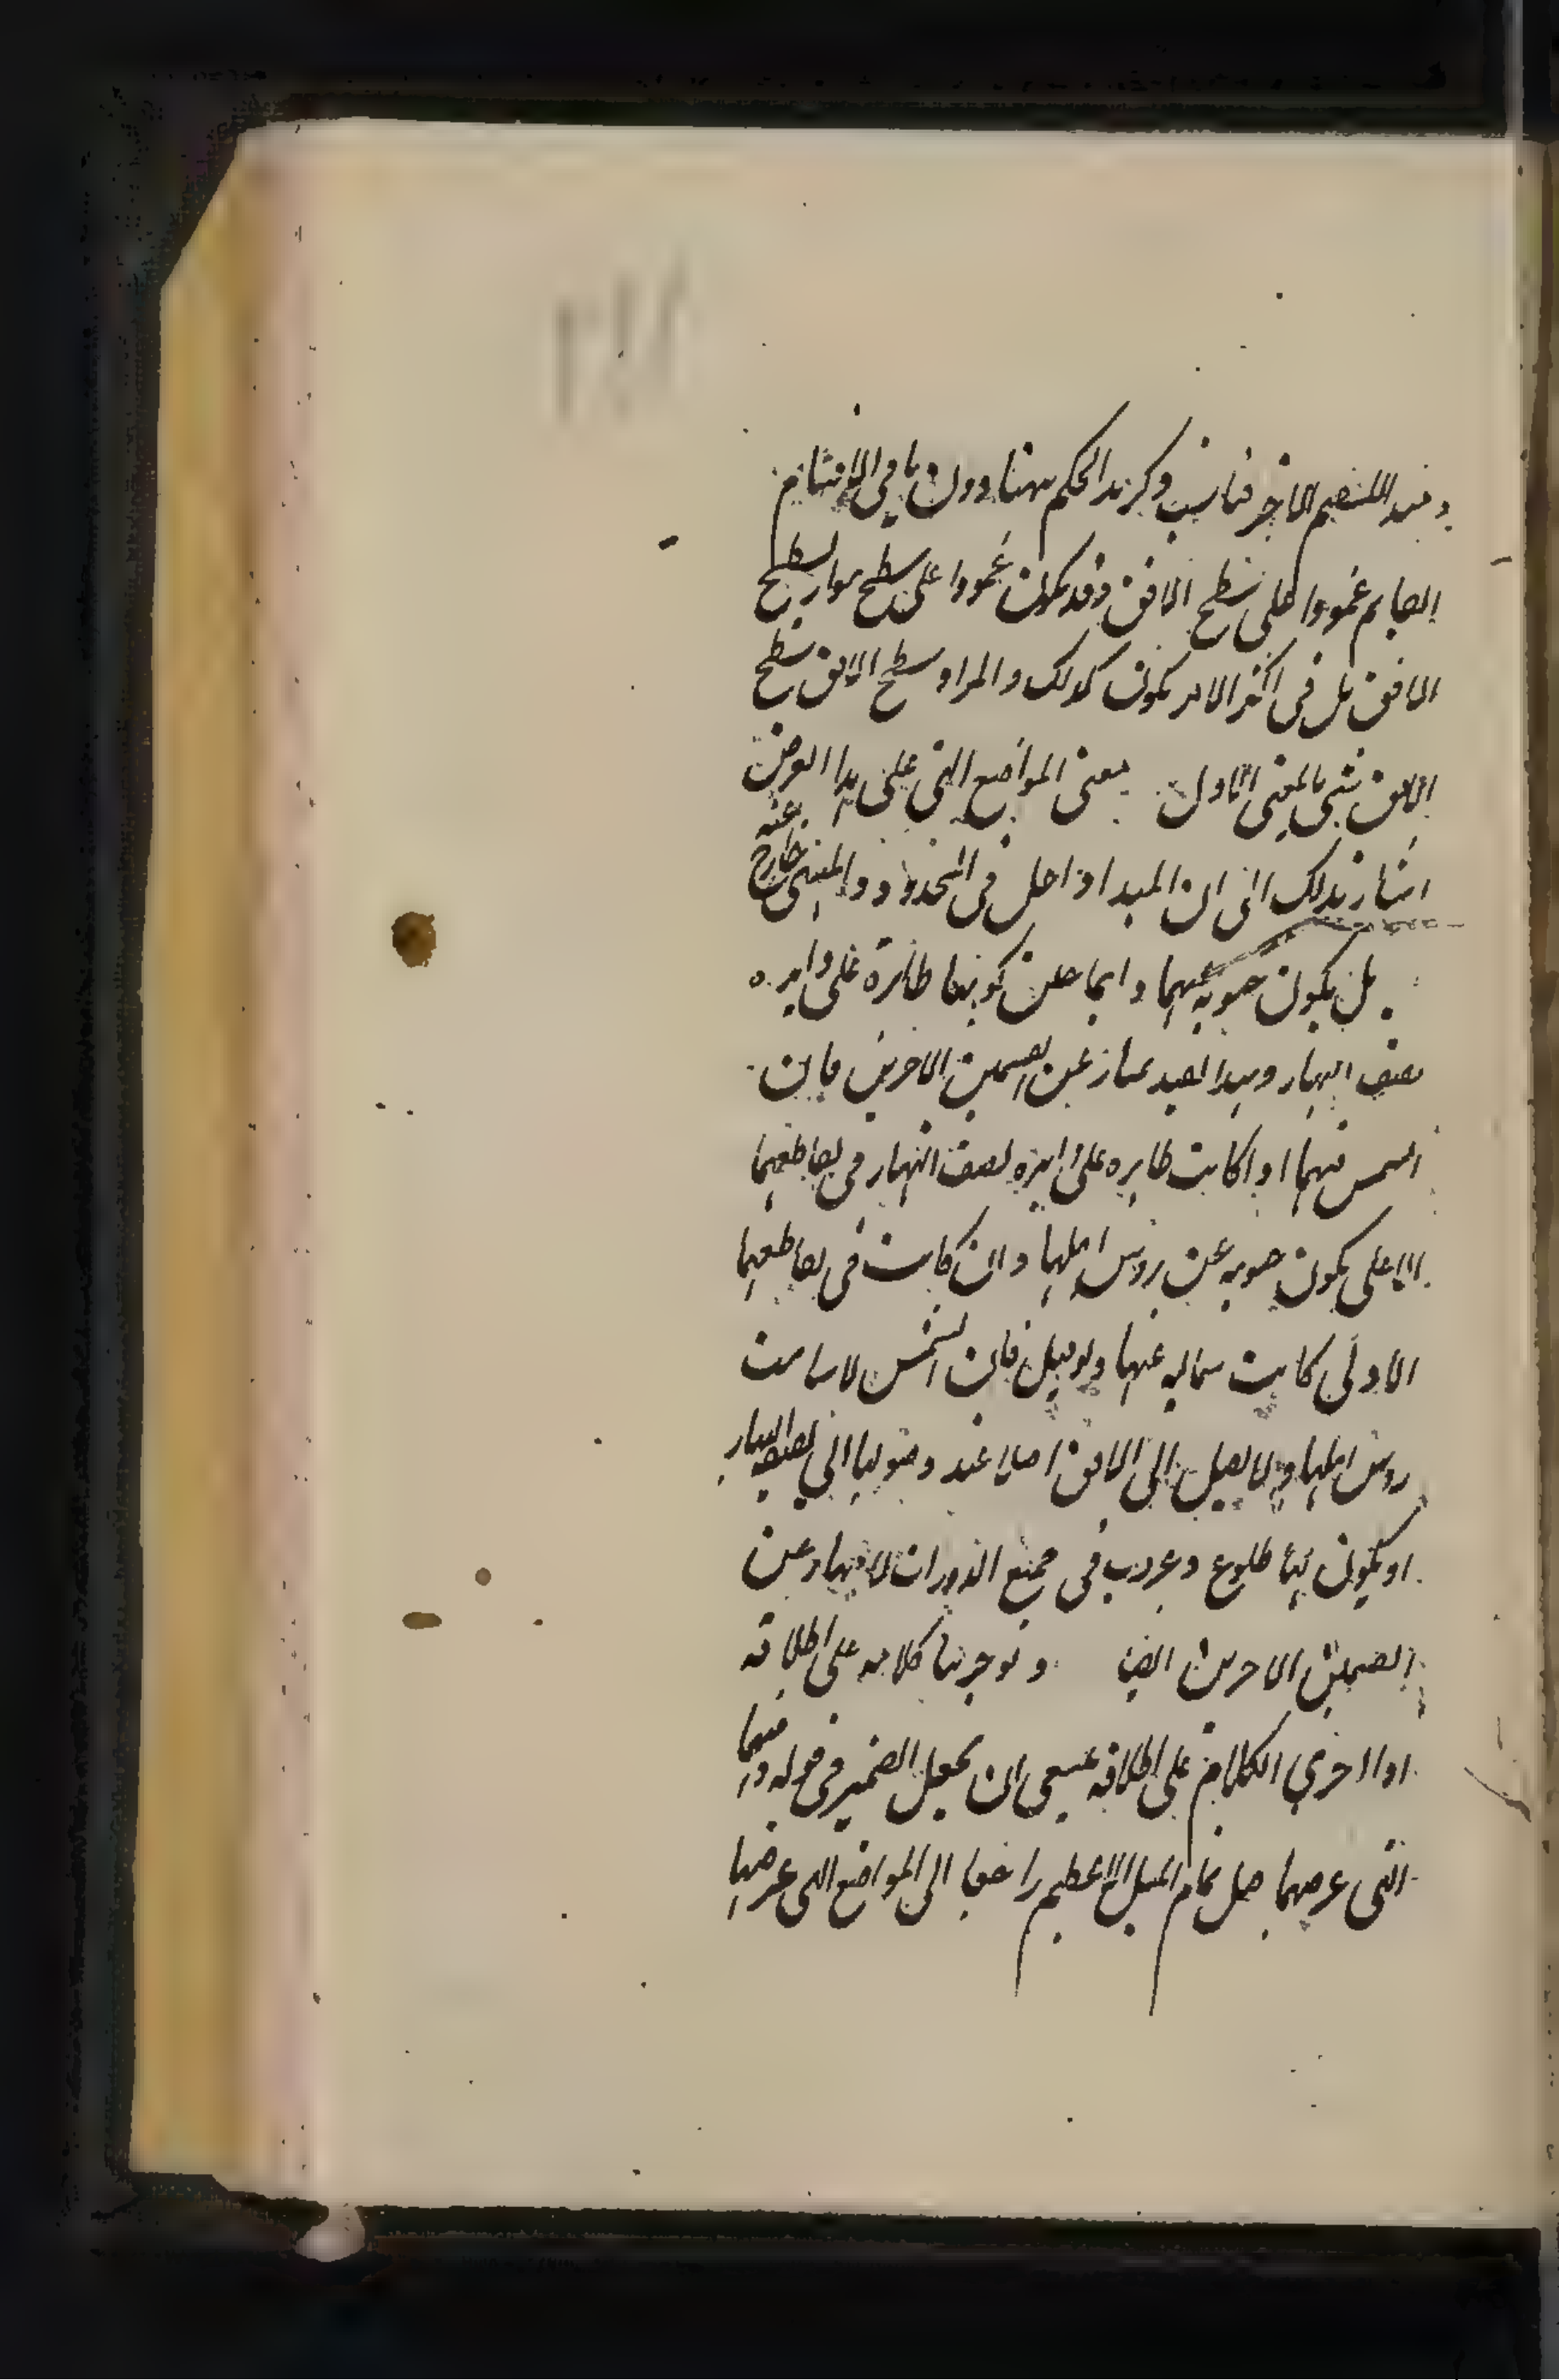 وهذا القسم الاخر فناسب ذكر هذا الحكم ههنا دون باقى الاقسام
القايم عمودا على سطح الافق وقد يكون عمودا على سطح مواز لسطح
الافق بل فى اكثر الامر يكون كذلك والمراد سطح الافق سطح
الافق بالمعنى الاول يعنى المواضع التى على هذا العرض
اشار بذلك الى ان المبدا داخل فى المحدود والمنتهى خارج عنه
بل يكون جنوبية عنها دايما حين كونها ظاهرة على دايره
نصف النهار وبهذا القيد يمتاز عن القسمين الاخرين فان
الشمس فيهما اذا كانت ظاهره على دايره نصف النهار فى تقاطعهما
الاعلى يكون جنوبيه عن رؤس اهلها وان كانت فى تقاطعهما
الادنى كانت شماليه عنها ولو قيل فان الشمس لا تسامت
رؤس اهلها ولا يصل الى الافق اصلا عند وصولها الى نصف النهار
او يكون لها طلوع وغروب فى جميع الدورات لامتاز عن
القسمين الاخرين ايضا ولو اجرينا كلامه على اطلاقه
اذا اجرى الكلام على اطلاقه ينبغى ان يجعل الضمير فى قوله وفيما
التى عرضها مثل تمام الميل الاعظم راجعا الى المواضع التى عرضها